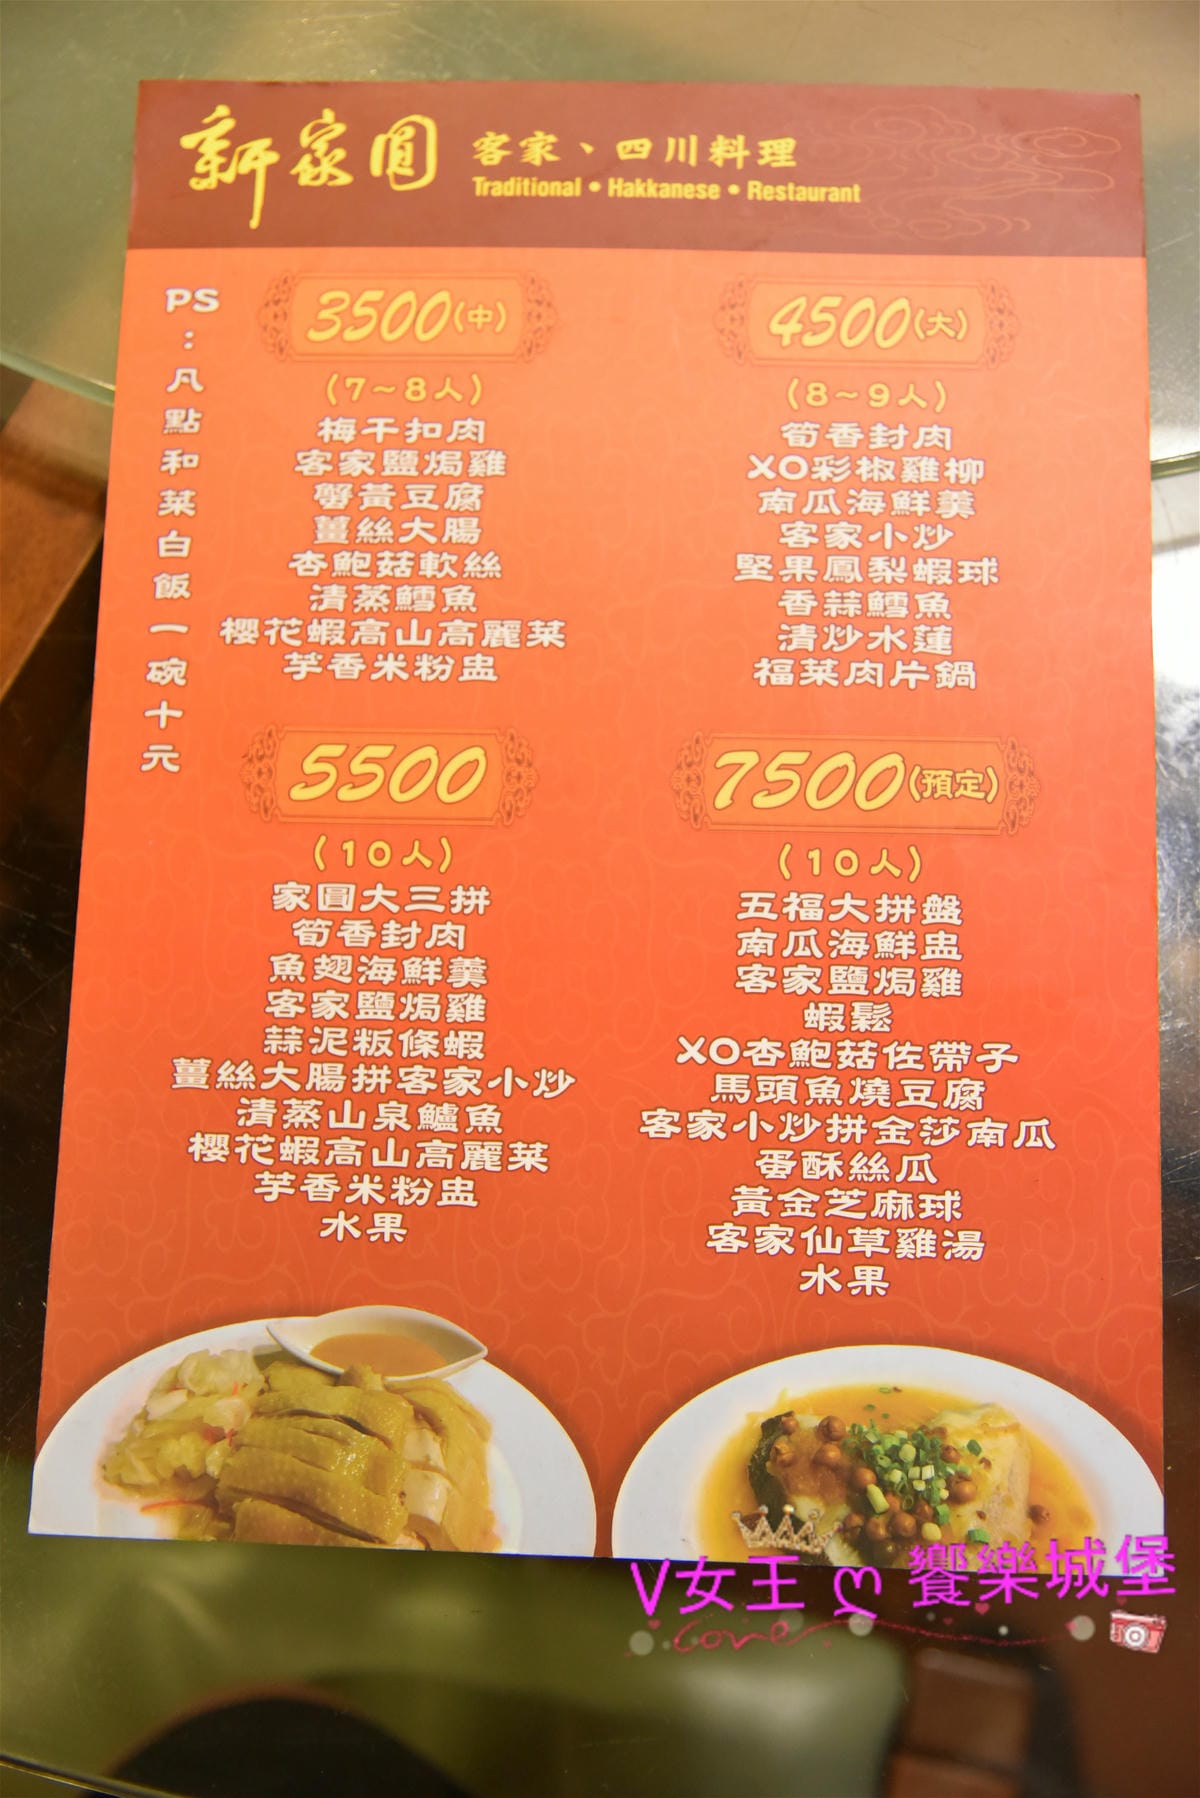 新家圓
客家、四川料理
Traditional • Hakkanese • Restaurant
PS：凡點和菜白飯一碗十元
3500(中)
(7~8人)
梅干扣肉
客家鹽焗雞
蟹黃豆腐
薑絲大腸
杏鮑菇軟絲
清蒸鱈魚
櫻花蝦高山高麗菜
芋香米粉盅
4500(大)
(8~9人)
筍香封肉
XO彩椒雞柳
南瓜海鮮羹
客家小炒
堅果鳳梨蝦球
香蒜鱈魚
清炒水蓮
福菜肉片鍋
5500
(10人)
家圓大三拼
筍香封肉
魚翅海鮮羹
客家鹽焗雞
蒜泥粄條蝦
薑絲大腸拼客家小炒
清蒸山泉鱸魚
櫻花蝦高山高麗菜
芋香米粉盅
水果
7500(預定)
(10人)
五福大拼盤
南瓜海鮮盅
客家鹽焗雞
蝦鬆
XO杏鮑菇佐帶子
馬頭魚燒豆腐
客家小炒拼金莎南瓜
蛋酥絲瓜
黃金芝麻球
客家仙草雞湯
水果
V女王ღ饗樂城堡